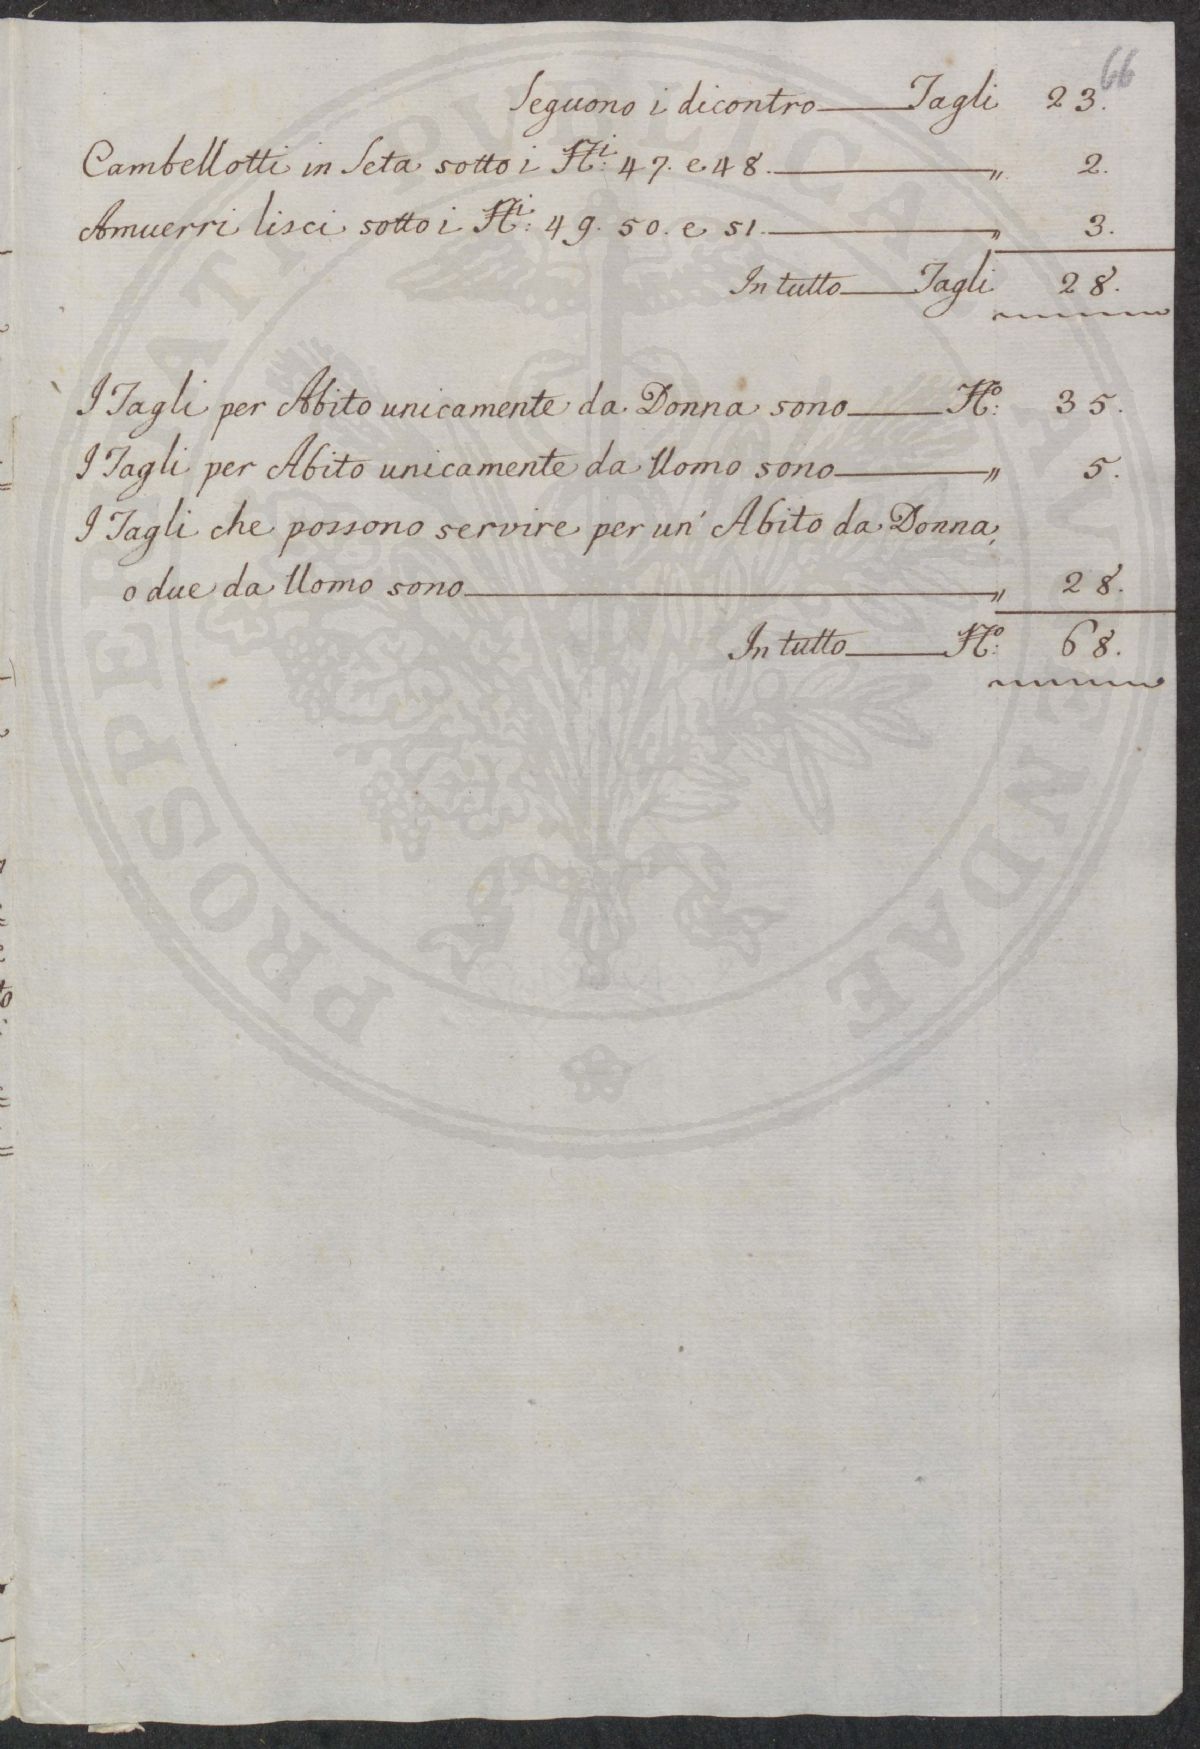 66
Seguono i dicontro Tagli 23.
Cambellotti in Seta sotto i Ni: 47. e 48. " 2.
Amuerri lisci sotto i Ni: 49. 50. e 51. " 3.
In tutto Tagli 28.
I Tagli per Abito unicamente da Donna sono No: 35.
I Tagli per Abito unicamente da Uomo sono " 5.
I Tagli che possono servire per un' Abito da Donna,
o due da Uomo sono " 28.
In tutto No: 68.
PROSPERITATI PVBLICAE AVGENDAE